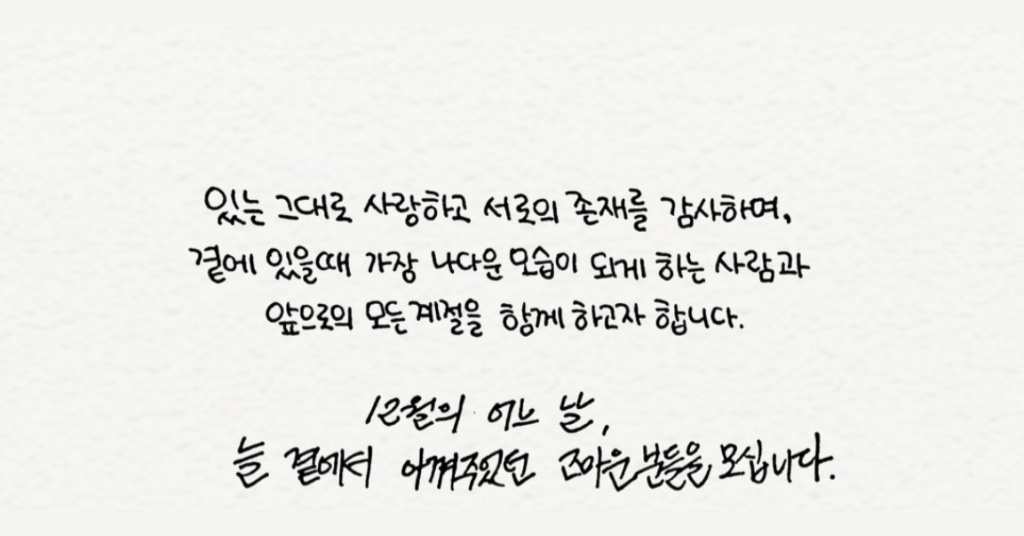 있는 그대로 사랑하고 서로의 존재를 감사하며,
곁에 있을때 가장 나다운 모습이 되게 하는 사람과
앞으로의 모든 계절을 함께 하고자 합니다.
12월의 어느 날,
늘 곁에서 아껴주었던 고마운 분들을 모십니다.